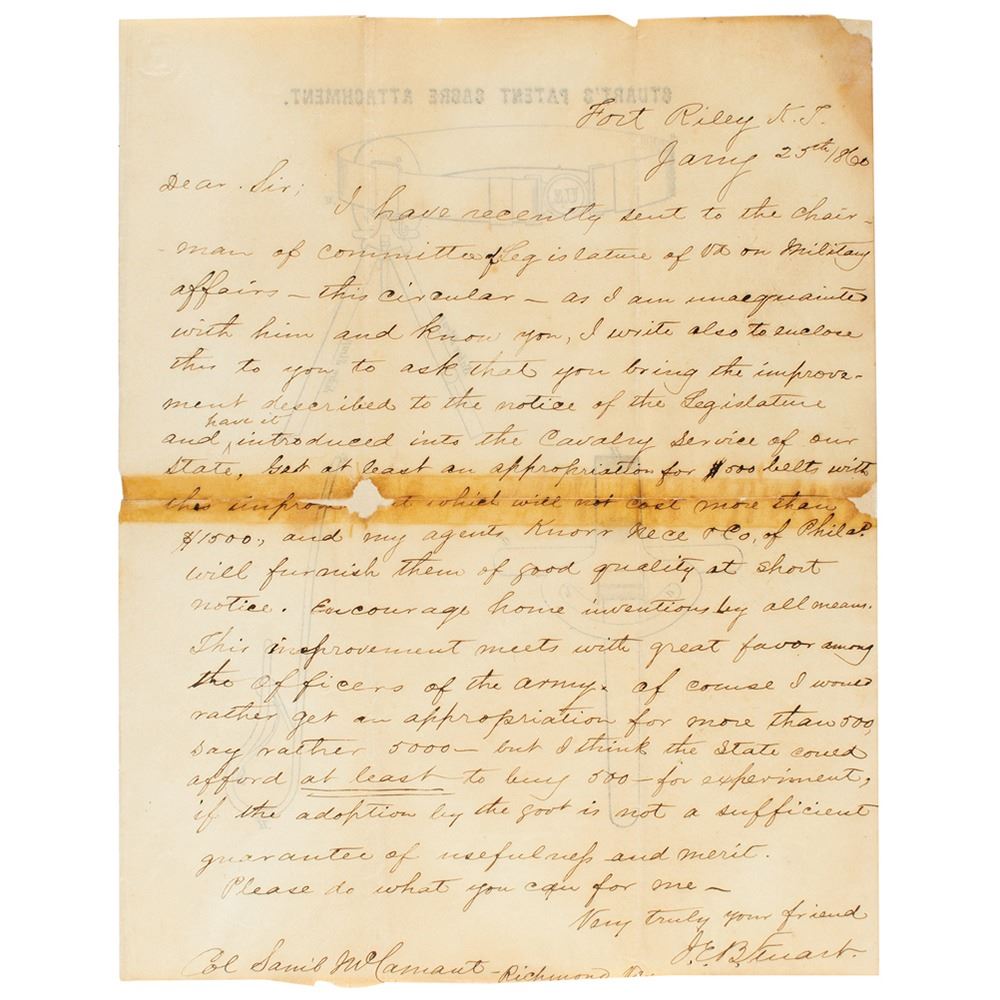 STUART'S PATENT SABRE ATTACHMENT.
Fort Riley K.T.
Jany 25th, 1860
Dear Sir;
I have recently sent to the chair-
-man of committee of Legislature of Va on Military
affairs — this circular — as I am unacquainted
with him and know you, I write also to enclose
this to you to ask that you bring the improve-
ment described to the notice of the Legislature
have it
and introduced into the Cavalry Service of our
State, Get at least an appropriation for 500 belts with
this improv t which will not cost more than
$1500., and my agents Knorr Nece & Co, of Philad.
will furnish them of good quality at short
notice. Encourage home inventions by all means.
This improvement meets with great favor among
the officers of the army. Of course I would
rather get an appropriation for more than 500,
say rather 5000 — but I think the State could
afford at least to buy 500 — for experiment,
if the adoption by the govt is not a sufficient
guarantee of usefulness and merit.
Please do what you can for me —
Very truly your friend
J.E.B. Stuart.
Col Saml McCamant - Richmond Va.